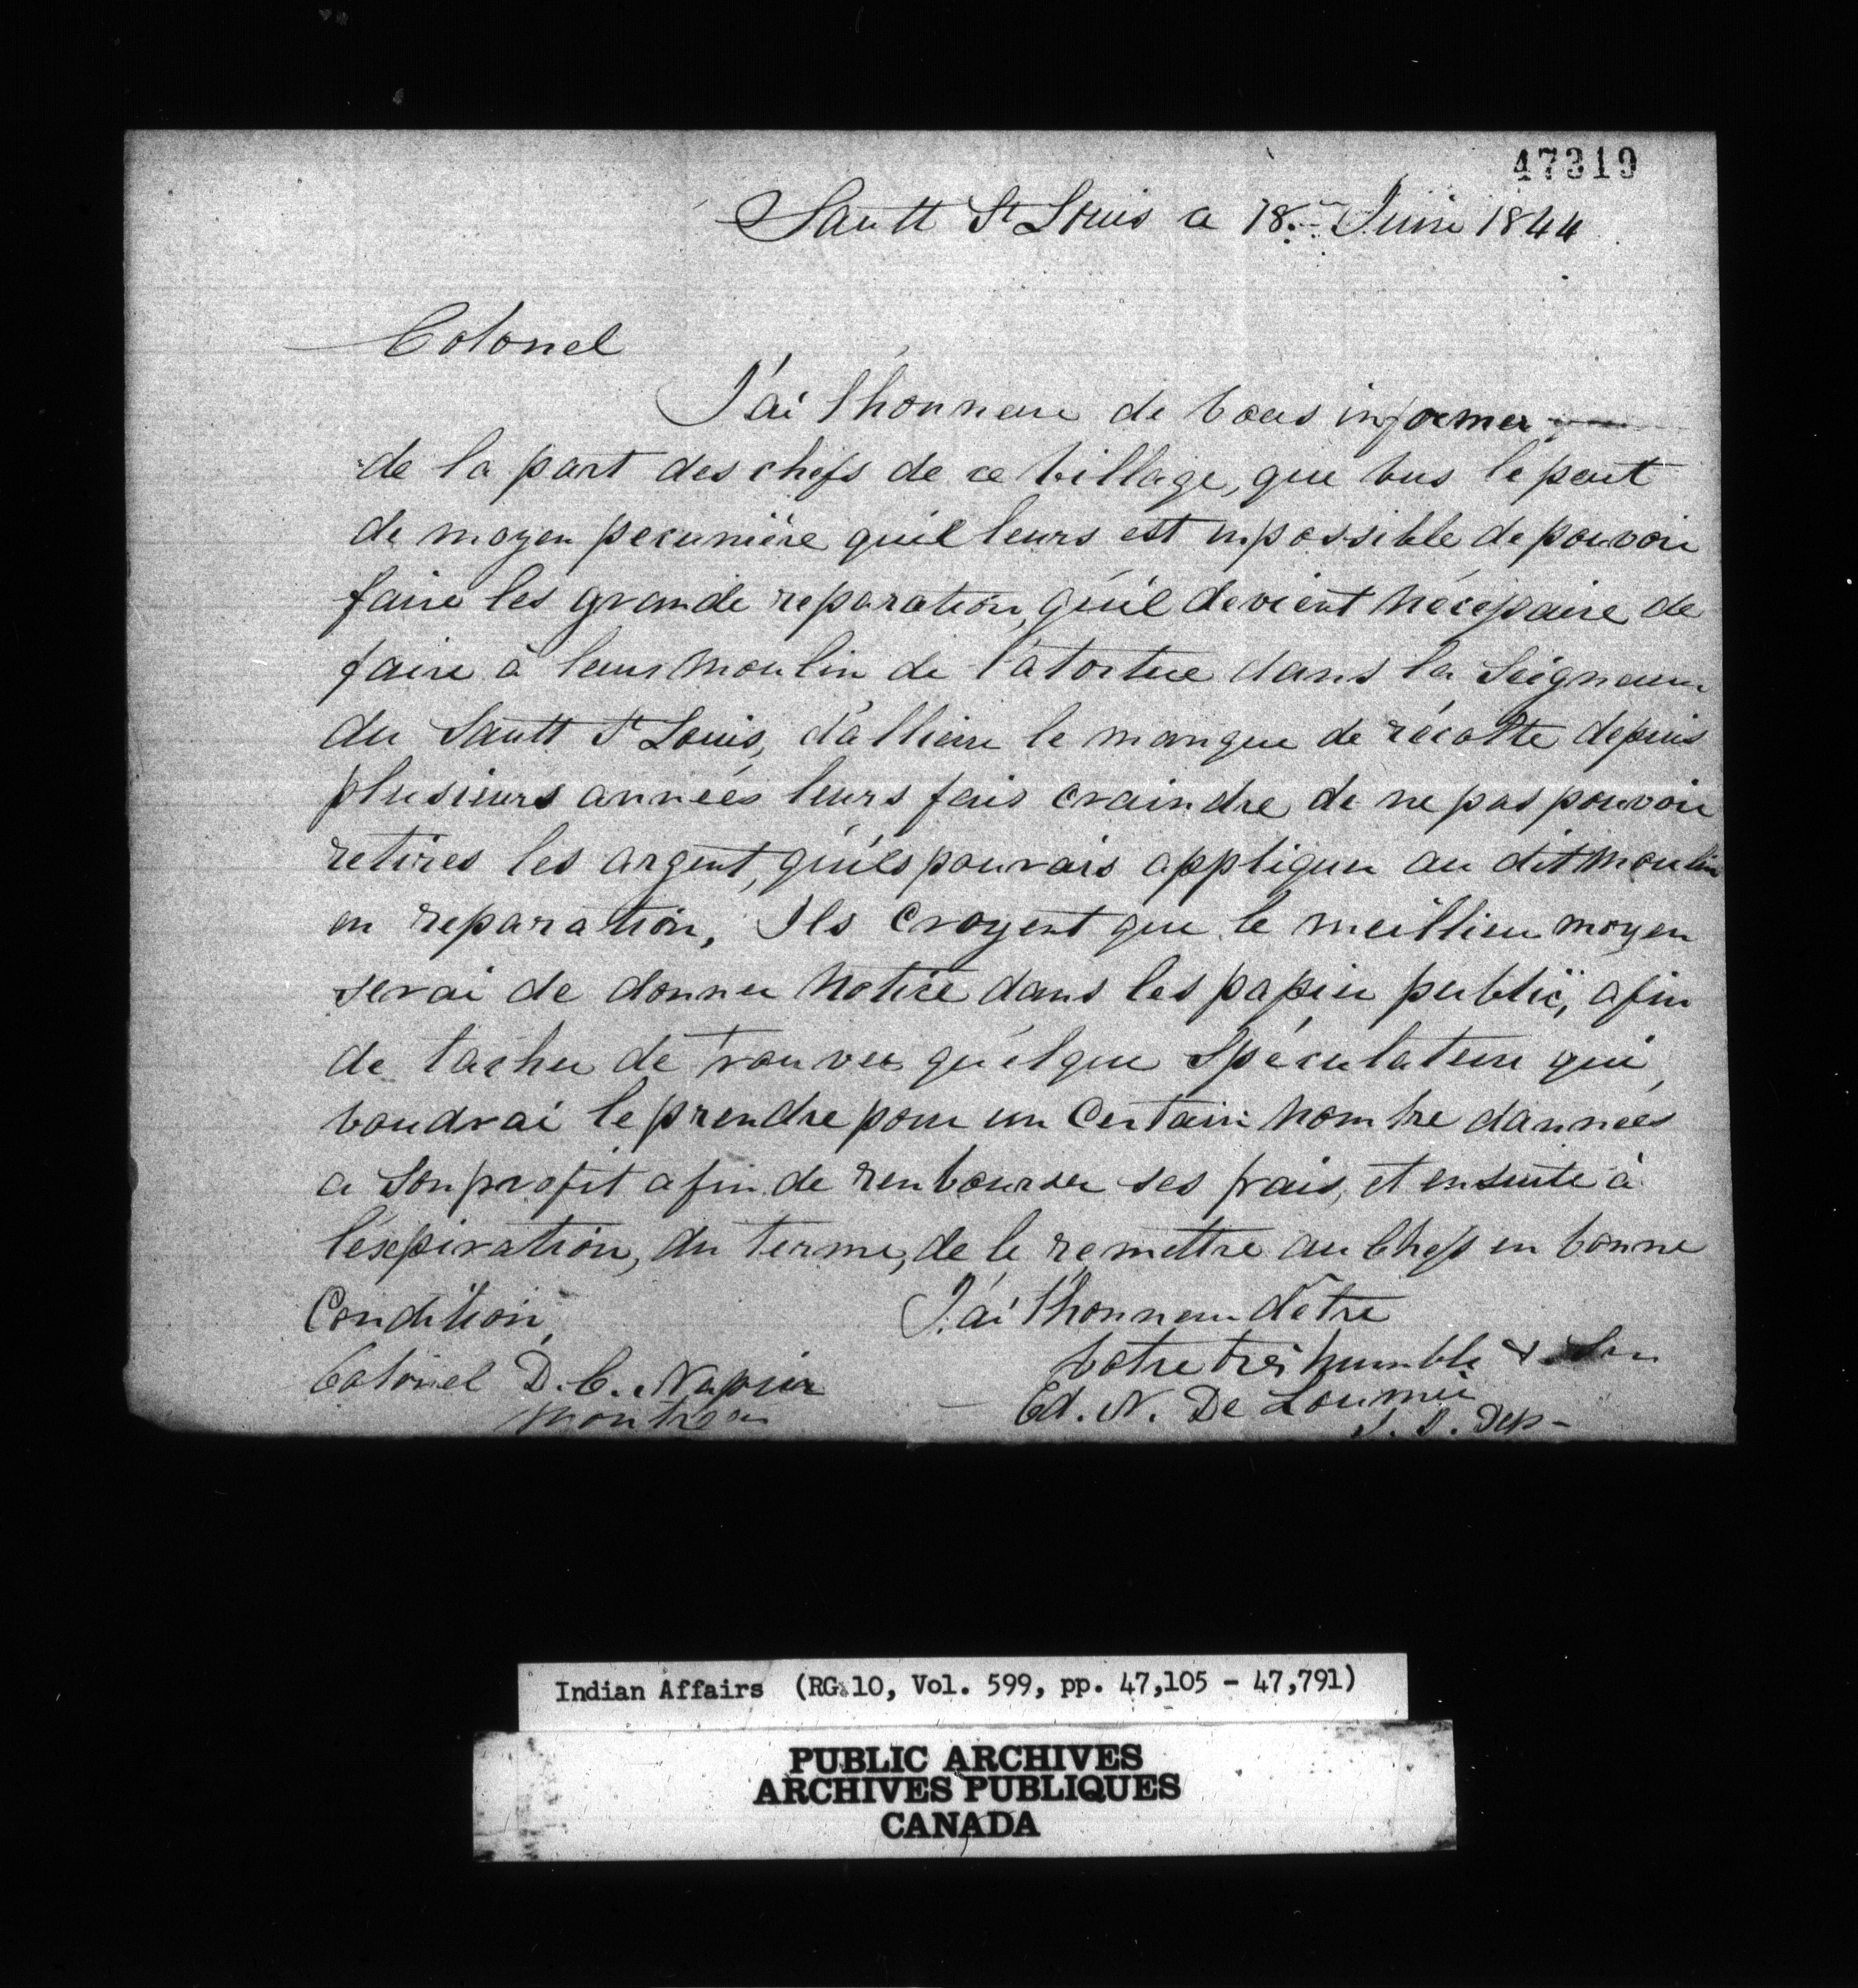 47319
Sautt St Louis a 18.- Juin 1844
Colonel
J'ai l'honneur de vous informer
de la part des chefs de ce village, que vus le peut
de moyen pecunière qu'il leurs est mpossible de pouvoir
faire les grande reparation, qu'il devient nécessaire de
faire à leurs moulin de la tortue dans la Seigneurie
du Sautt St Louis, d'allieur le manque de récolte depuis
plusieurs années leurs fais craindre de ne pas pouvoir
retires les argent, qu'ils pouvais appliquer au dit moulin
en reparation, Ils croyent que le meillieur moyen
serai de donner notice dans les papier public, afin
de tacher de trouver quelque Spéculateur qui
voudrai le prendre pour un certain nombre d'années
a Son profit afin de renbourser ses frais, et ensuite à
l'expiration, du terme, de le remettre au Chefs en bonne
Condition,
J'ai l'honneur d'être
votre très humble & Ser
Colonel D. C. Napier
Ed. N. De Lorimier
Montreal
I. D. Dep-
Indian Affairs (RG 10, Vol. 599, pp. 47,105 - 47,791)
PUBLIC ARCHIVES
ARCHIVES PUBLIQUES
CANADA